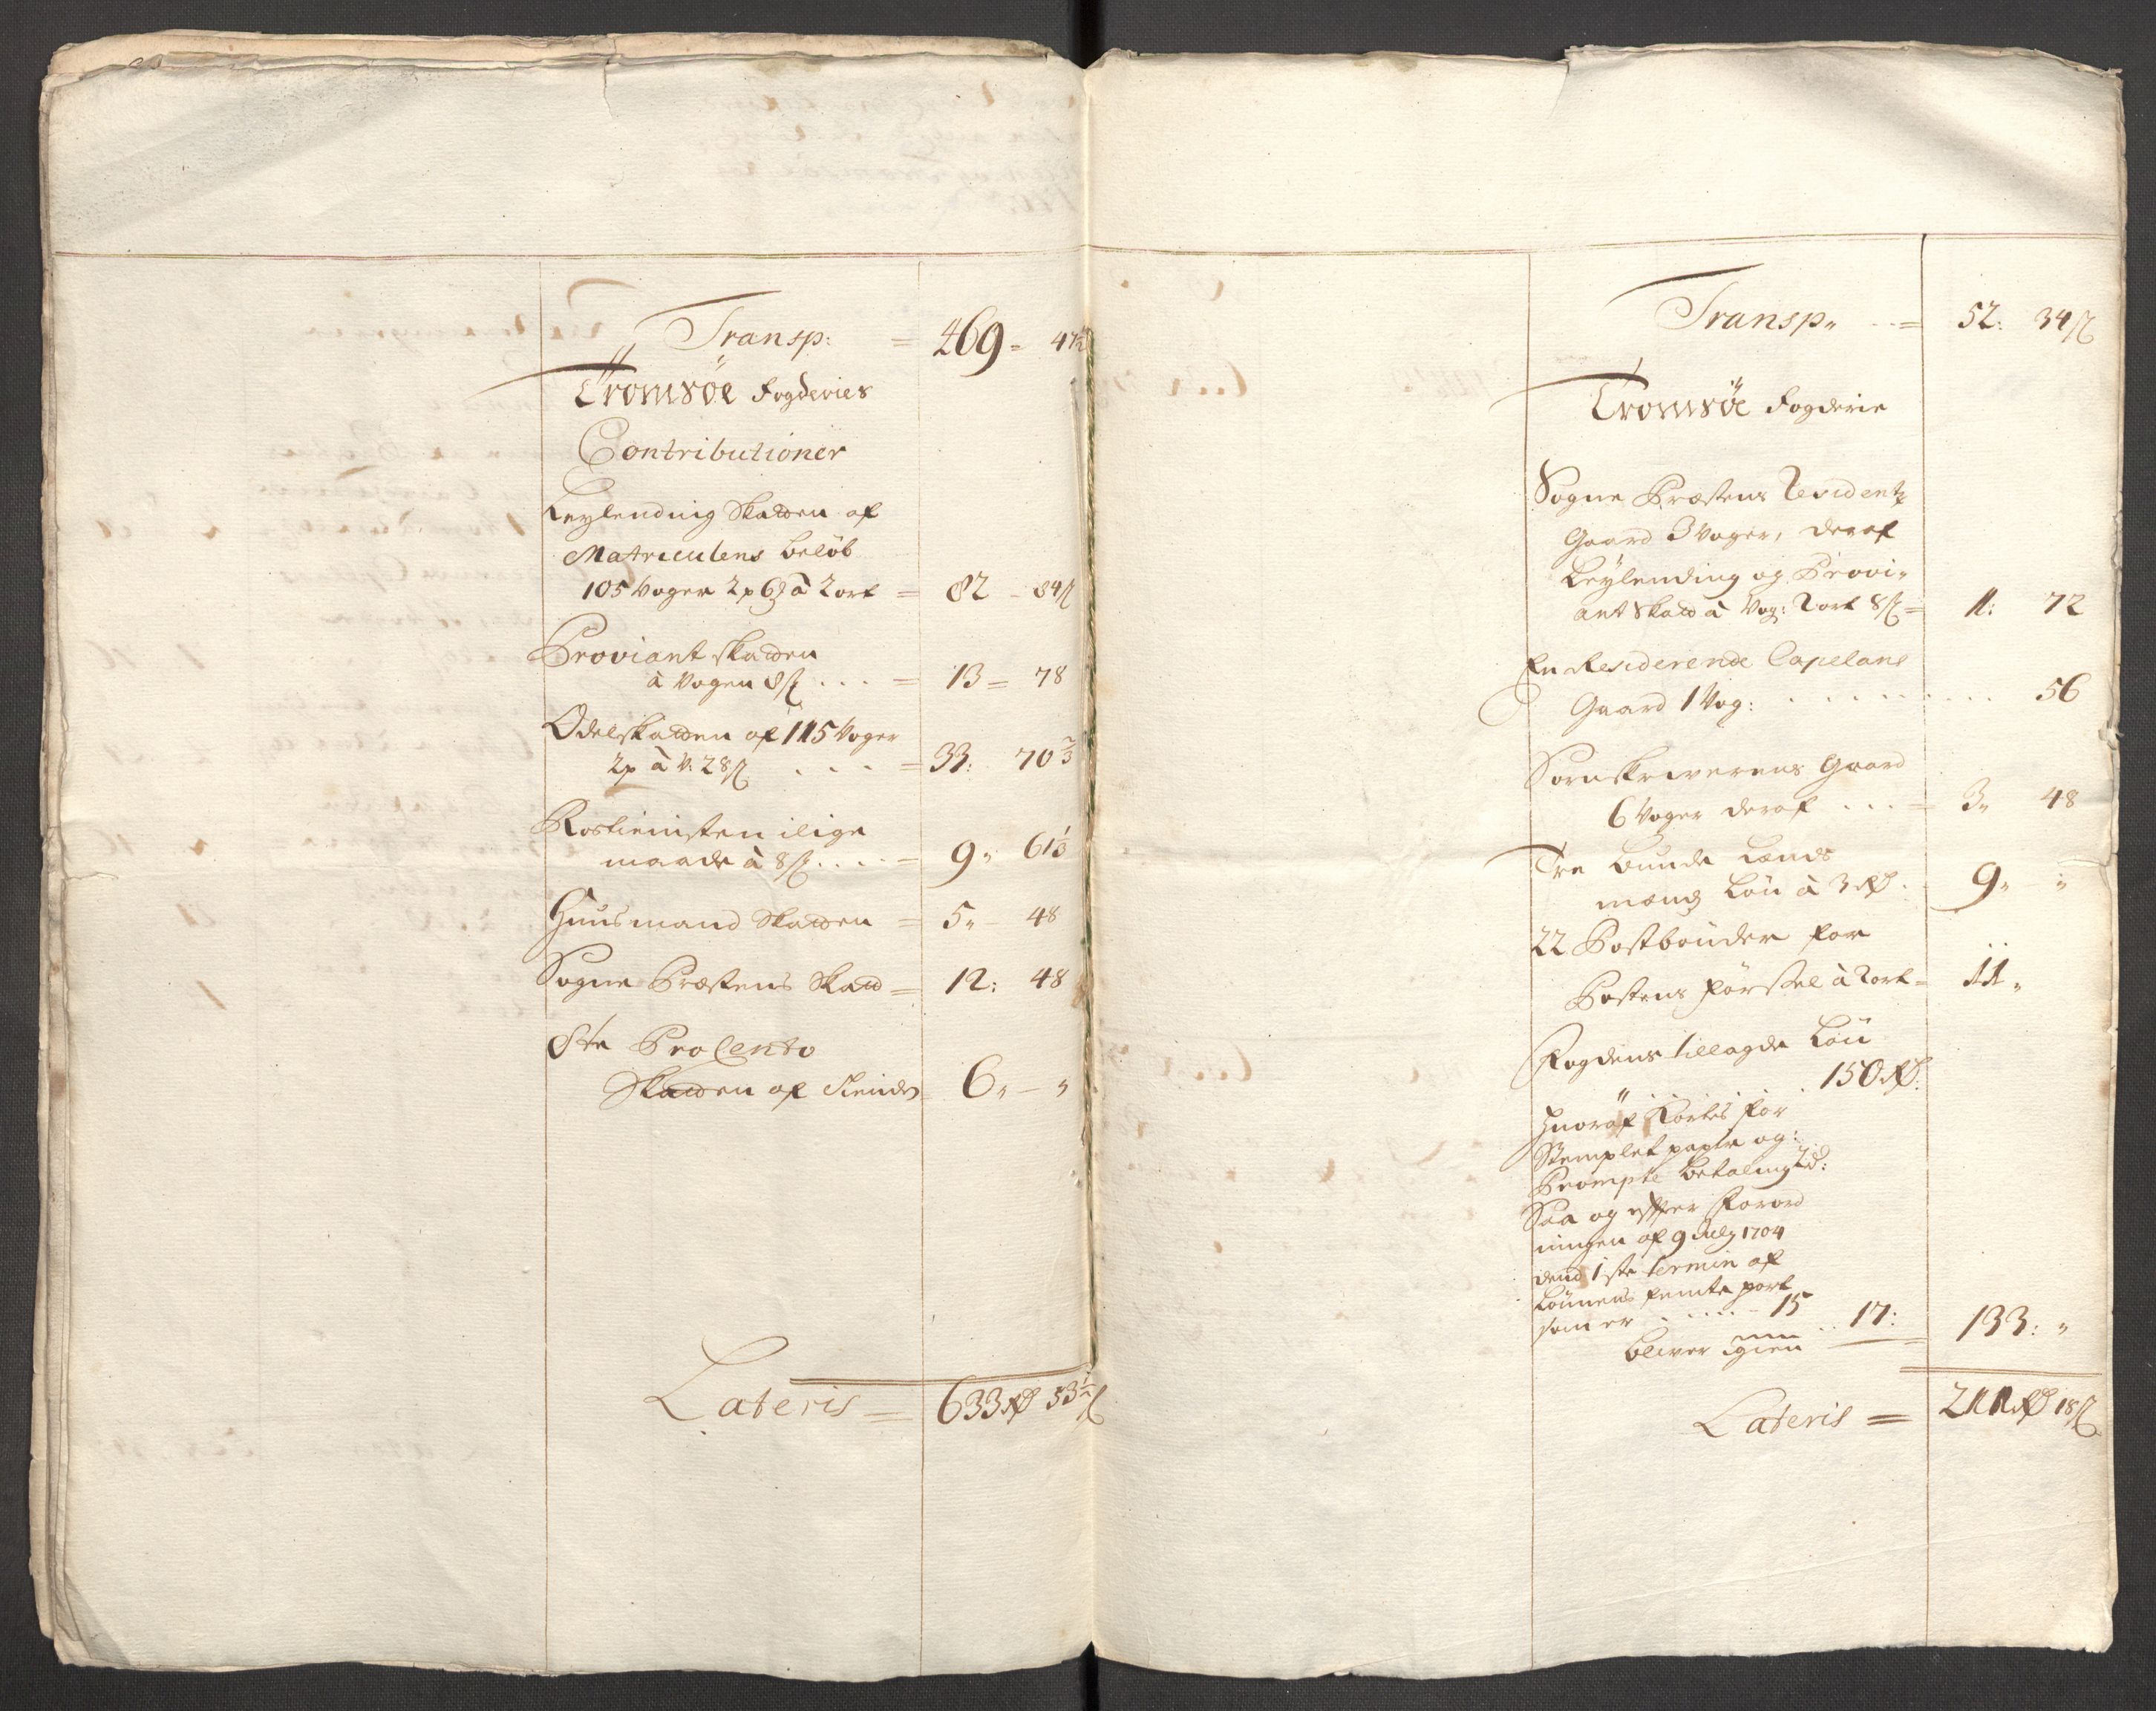 Transp: = 469 = 47½
Tromsøe Fogderies
Contributioner
Leylending Skatten af
Matriculens beløb
105 Voger 2 p 6 à 2 ort = 82 - 84 ß
Proviant skatten
à Vogen 8 ß . . . = 13 = 78
Odelskatten af 115 Voger
2 p à V: 28 ß . . . = 33: 70 2/3
Rostienisten i lige
maade à 8 ß . . . . = 9 " 61 1/3
Huusmand Skatten = 5 " - 48
Sogne Præstens Skatt = 12: 48
8te ProCento
Skatten af Tiende 6 " - "
Lateris = 633 Rd 53½ ß
Transp " - - = 52: 34 ß
Tromsøe Fogderie
Sogne Præstens Residentz
Gaard 3 Voger, deraf
Leylending og Provi-
ant Skatt à Vog: 2 ort 8 ß = 1: 72
En Residerende Capelans
Gaard 1 Vog: . . . . . . . . 56
Sornskriverens Gaard
6 Voger deraf . . . = 3 " 48
Tre bunde Lends
mends Løn à 3 Rd . 9 " "
22 Postbønder for
Postens førssel à 2 ort = 11 "
Fogdens tillagde Løn
. . . . 150 Rd:
Huoraf Kortes for
Stemplet papir og
Prompte betaling 2 Rd:
Saa og efter Forord
ningen af 9 July 1704
dend 1ste termin af
Lønnens femte part
som er . . . . . - 15 . . 17:
bliver igien = 133: "
Lateris = 211 Rd 18 ß